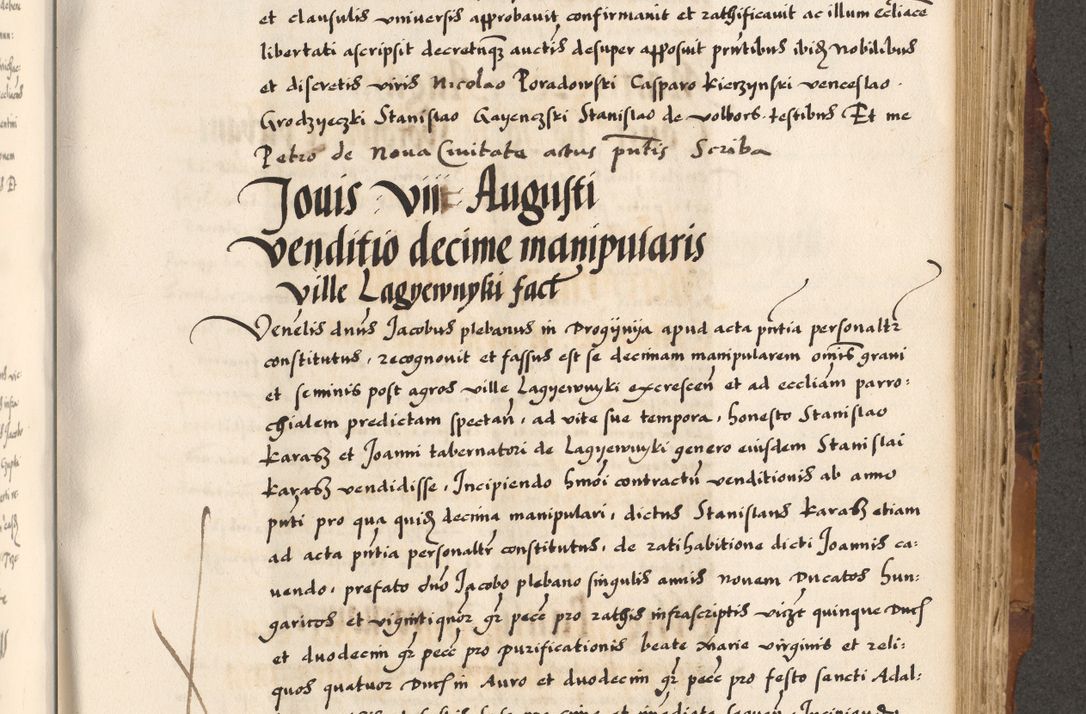 et clausulis universis approbavit confirmavit et rathificavit ac illum eccliace
libertati ascripsit decretumq auctis desuper apposuit pntibus ibidz Nobilibus
et discretis viris Nicolao Poradowski Casparo Kierzynski venceslao
Grodzyeczki Stanislao Gayenczski Stanislao de volbors testibus Et me
Petro de Nova Civitate actus pntis Scriba
Jovis viii Augusti
venditio decime manipularis
ville Lagyewnyki fact
Venelis dnus Jacobus plebanus in Drogijnija apud acta pntia personaltr
constitutus, recognovit et fassus est se decimam manipularem omis grani
et seminis post agros ville Lagyewnyki excrescen et ad eccliam parro:
chialem predictam spectan, ad vite sue tempora, honesto Stanislao
Karasz et Joanni tabernatori de Lagyewnyki genero eiusdem Stanislai
Karasz vendidisse, Incipiendo hmoi contractu venditionis ab anno
pnti pro qua quidz decima manipulari, dictus Stanislaus Karasz etiam
ad acta pntia personaltr constitutus, de ratihabitione dicti Joannis ca:
vendo, prefato dno Jacobo plebano singulis annis novem Ducatos hun:
garicos et vigintiquor gr pecc pro rathis infrascriptis vizt quinque Duc
et duodecim gr pecc pro purificationis beate Marie virginis et reli:
quos quatuor Duc in Auro et duodecim gr pecc pro festo sancti Adal: